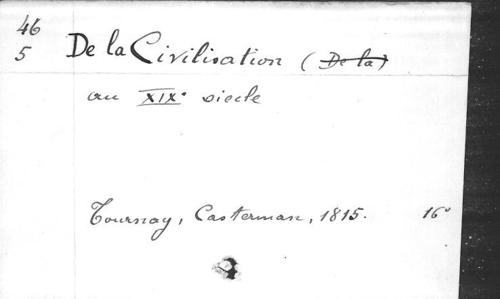 46
5
De la Civilisation (De la)
au XIXe siecle
Tournay, Casterman, 1815. 16°